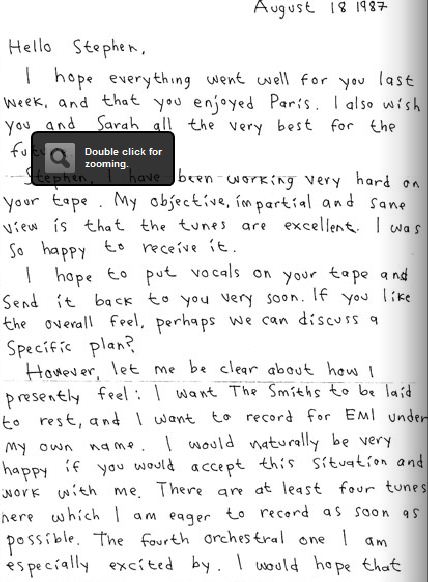 August 18 1987
Hello Stephen,
I hope everything went well for you last
week, and that you enjoyed Paris. I also wish
you and Sarah all the very best for the
fu
Double click for
zooming.
Stephen, I have been working very hard on
your tape. My objective, impartial and sane
view is that the tunes are excellent. I was
so happy to receive it.
I hope to put vocals on your tape and
send it back to you very soon. If you like
the overall feel, perhaps we can discuss a
specific plan?
However, let me be clear about how I
presently feel: I want The Smiths to be laid
to rest, and I want to record for EMI under
my own name. I would naturally be very
happy if you would accept this situation and
work with me. There are at least four tunes
here which I am eager to record as soon as
possible. The fourth orchestral one I am
especially excited by. I would hope that